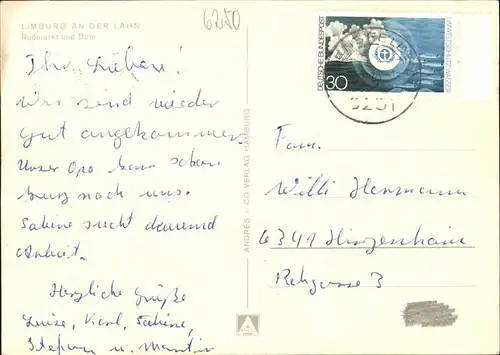 LIMBURG AN DER LAHN
Roßmarkt und Dom
6250
Ihr Lieben!
Wir sind wieder
gut angekommen.
Unser Opa kam schon
kurz nach uns.
Sabine sucht dauernd
Herzliche Grüße
Luise, Karl, Sabine,
Stefan u. Martin
ANDRES + CO VERLAG HAMBURG
DEUTSCHE BUNDESPOST
30
UMWELTSCHUTZ: WASSER
6251
Fam.
Willi Hermann
6341 Hirzenhain
Rehgasse 3